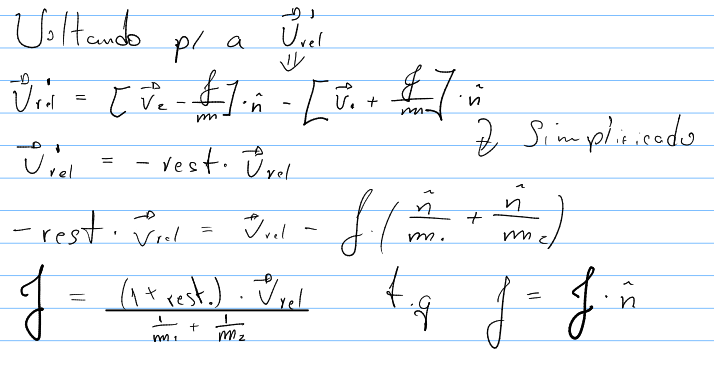 Voltando p/ a v⃗'rel
⇓
v⃗'rel = [v⃗₂ - J/m]·n̂ - [v⃗₁ + J/m]·n̂
↯ Simplificado
v⃗'rel = - rest. v⃗rel
- rest. v⃗rel = v⃗rel - J·(n̂/m₁ + n̂/m₂)
J = (1 + rest.)·v⃗rel / (1/m₁ + 1/m₂) t.q J = J·n̂